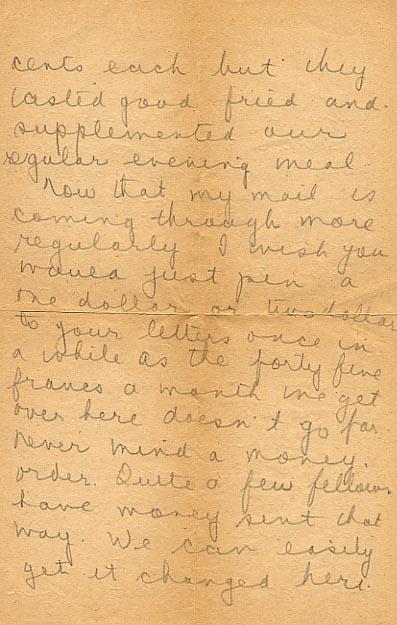 cents each but they
tasted good fried and
supplemented our
regular evening meal.
Now that my mail is
coming through more
regularly I wish you
would just pin a
one dollar or two dollar
to your letters once in
a while as the forty five
francs a month we get
over here doesn't go far.
Never mind a money
order. Quite a few fellows
have money sent that
way. We can easily
get it changed here.